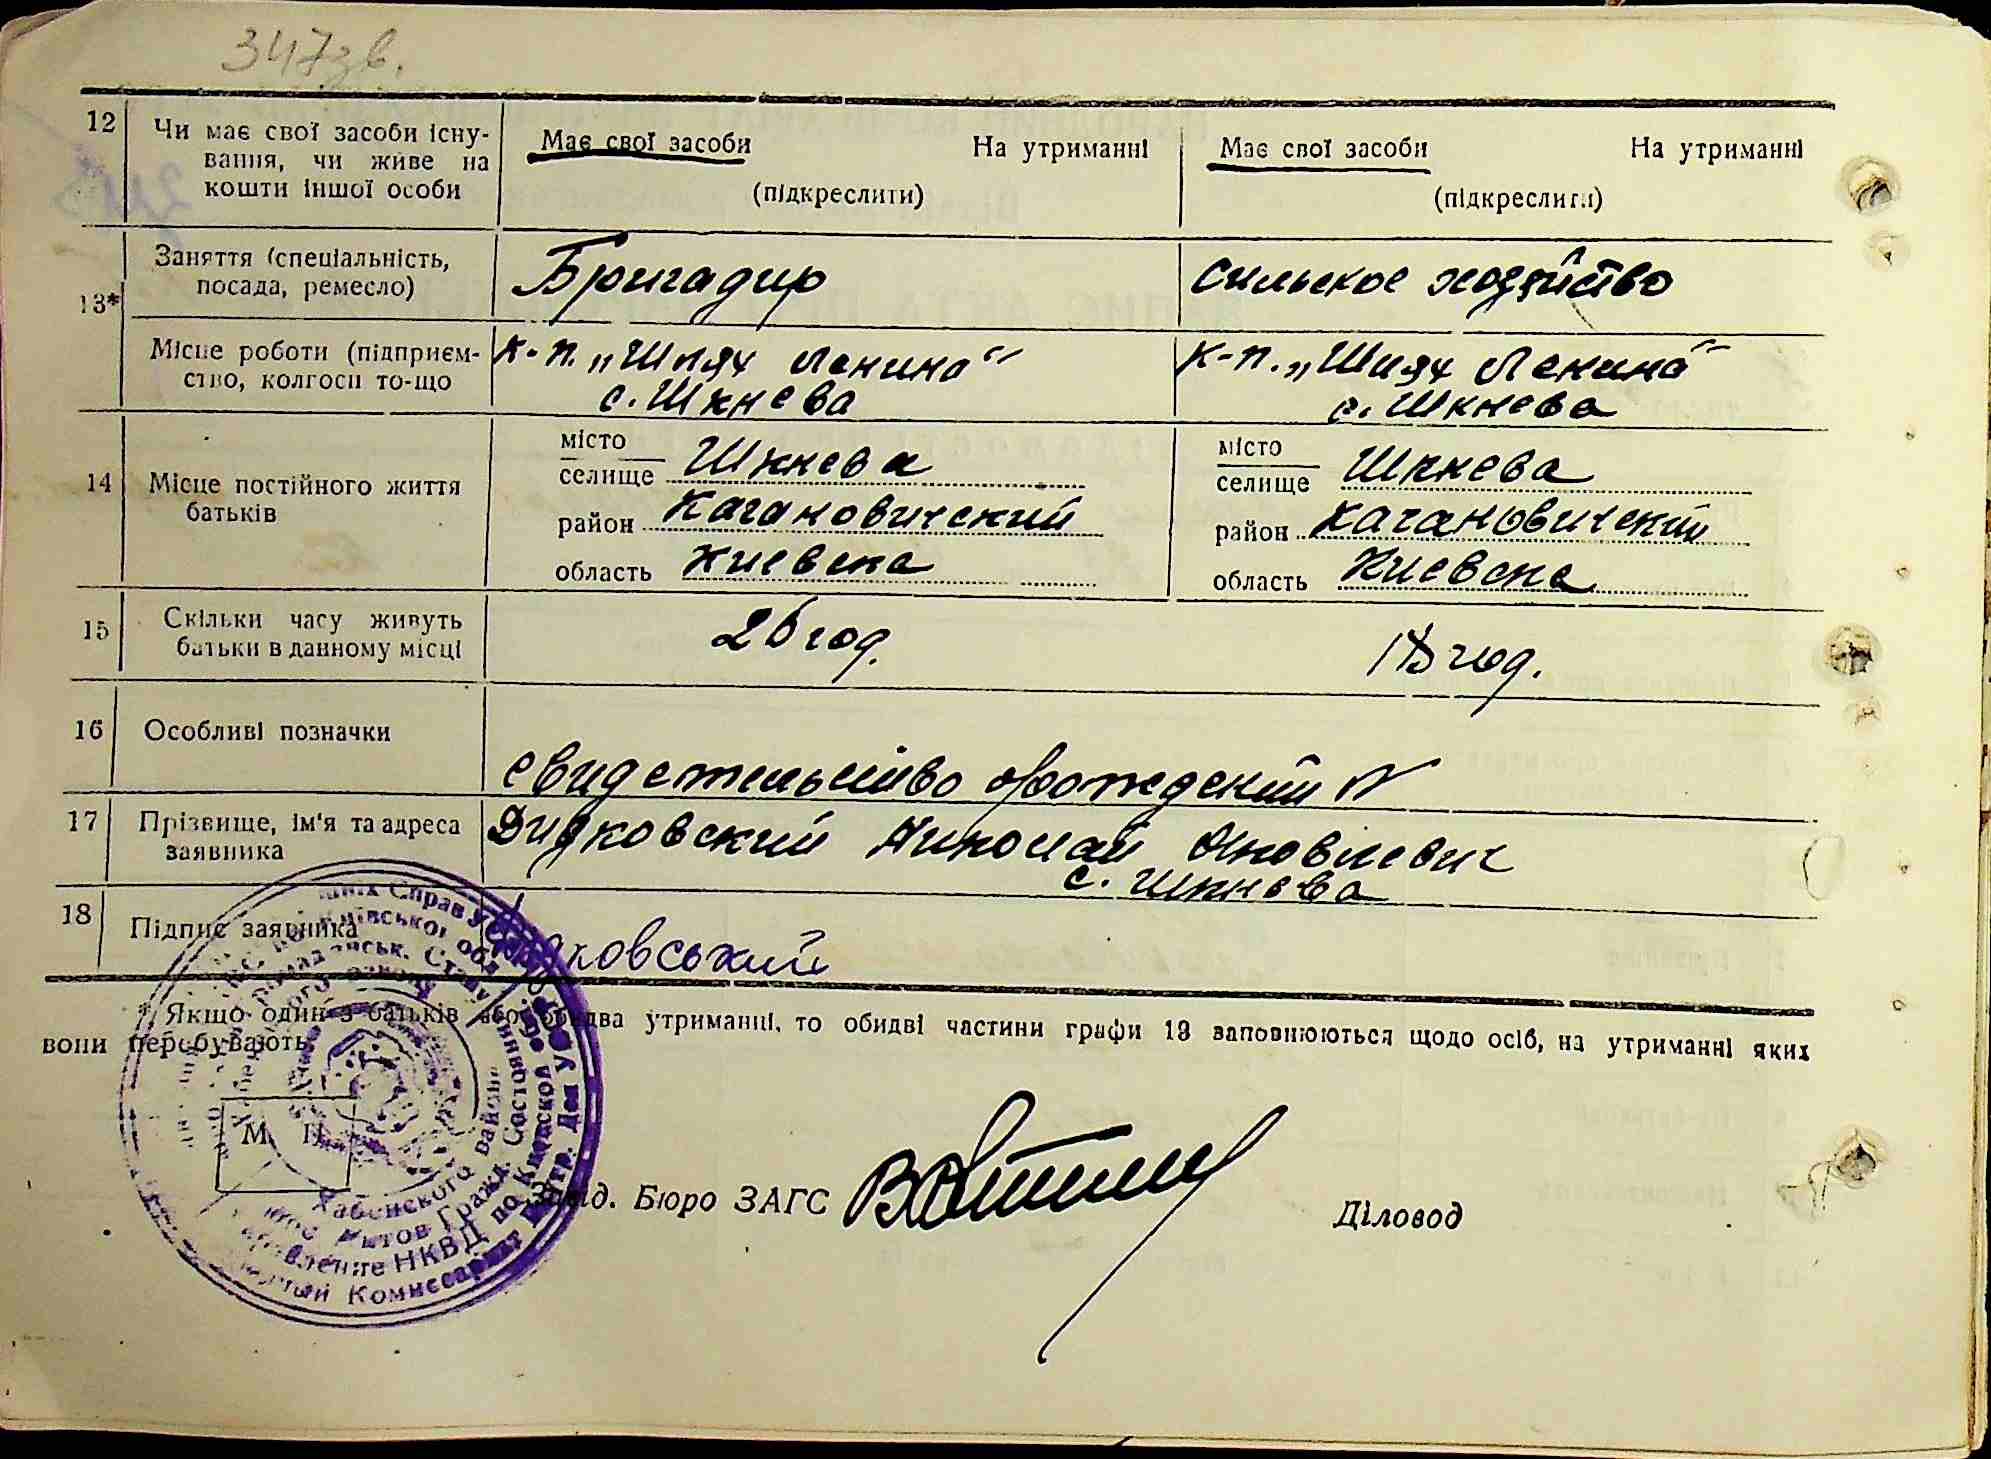 347зв.
12 Чи має свої засоби існу-
вання, чи живе на
кошти іншої особи
Має свої засоби На утриманні
(підкреслити)
Має свої засоби На утриманні
(підкреслити)
13*
Заняття (спеціальність,
посада, ремесло)
Бригадир
сильское хозяйство
Місце роботи (підприєм-
ство, колгосп то-що
к-п. „Шлях Ленина"
с. Шкнева
к-п. „Шлях Ленина"
с. Шкнева
14 Місце постійного життя
батьків
місто
селище Шкнева
район Кагановический
область Киевска
місто
селище Шкнева
район Кагановический
область Киевска
15 Скільки часу живуть
батьки в данному місці
26 год.
18 год.
16 Особливі позначки
свидетильство орождений N
17 Прізвище, ім'я та адреса
заявника
Дидковский Николай Яковлевич
с. Шкнева
18 Підпис заявника
ковський
* Якщо один з батьків або обидва утриманні, то обидві частини графи 13 заповнюються щодо осіб, на утриманні яких
вони перебувають.
М П
Зивд. Бюро ЗАГС
Діловод
Хабенского района
Актов Гражд. Состояния
Управление НКВД по Киевской
Комиссариат Внутр. Дел У